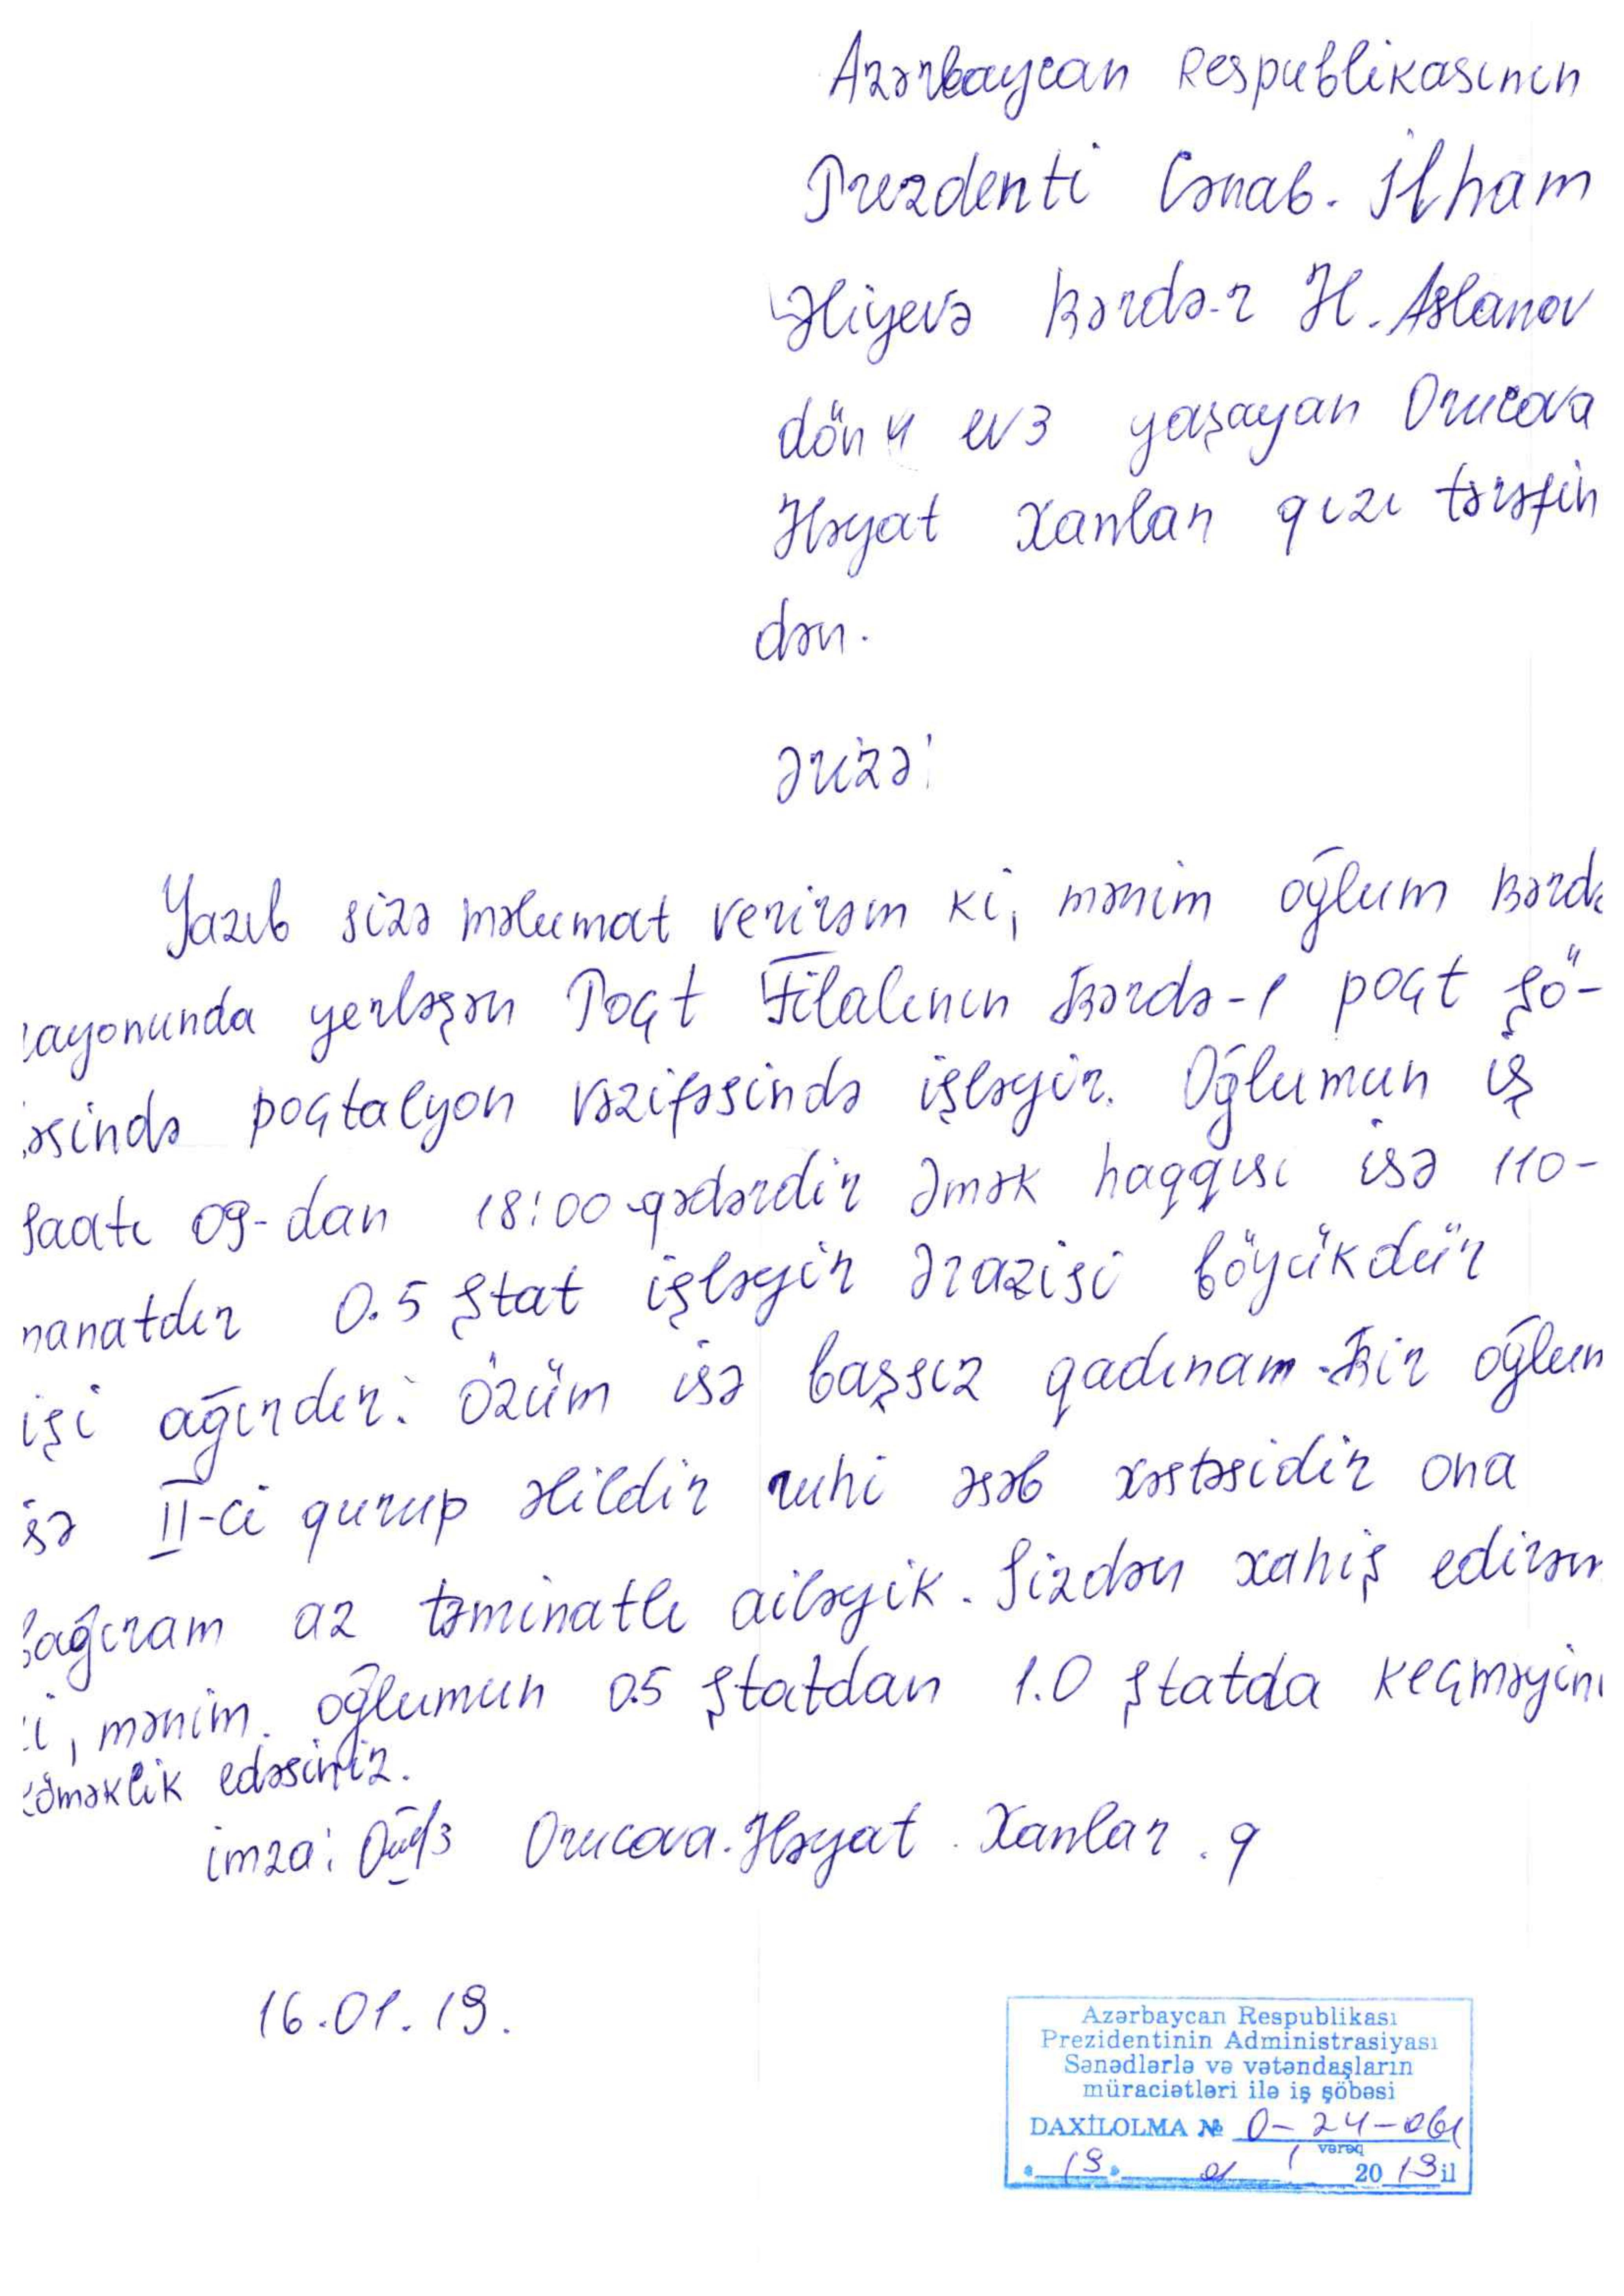 Azərbaycan Respublikasının
Prezdenti Cənab. İlham
Əliyevə Bərdə-r H. Aslanov
dön 4 ev 3 yaşayan Orucova
Həyat Xanlar qızı tərəfin
dən.
Ərizə:
Yazıb sizə məlumat verirəm ki, mənim oğlum Bərdə
rayonunda yerləşən Poçt Filalının Bərdə-1 poçt şö-
əsində poçtalyon vəzifəsində işləyir. Oğlumun iş
saatı 09-dan 18:00 qədərdir Əmək haqqısı isə 110-
manatdır 0.5 ştat işləyir Ərazisi böyükdür
işi ağırdır. Özüm isə başsız qadınam. Bir oğlum
isə II-ci qurup əlildir ruhi əsəb xəstəsidir ona
baxıram az təminatlı ailəyik. Sizdən xahiş edirəm
ki, mənim oğlumun 0.5 ştatdan 1.0 ştatda keçməyinə
köməklik edəsiniz.
imza: Orucova. Həyat. Xanlar. q
16.01.19.
Azərbaycan Respublikası
Prezidentinin Administrasiyası
Sənədlərlə və vətəndaşların
müraciətləri ilə iş şöbəsi
DAXİLOLMA № 0-24-061
1 vərəq
"19" 01 2019 il